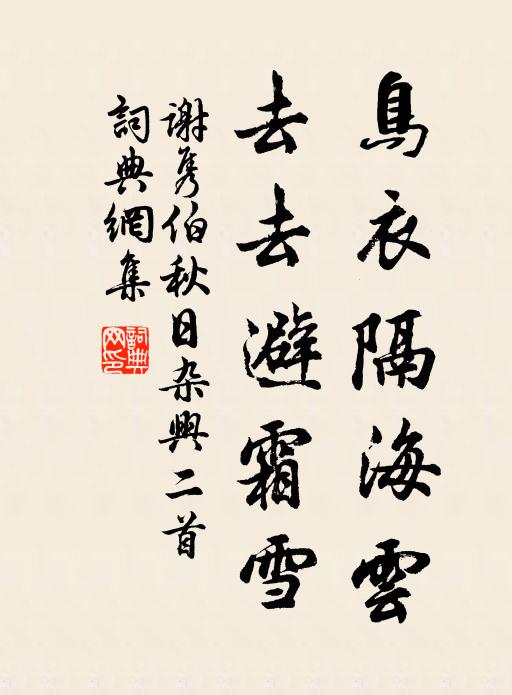 烏衣隔海雲
去去避霜雪
謝隽伯秋日杂興二首
詞典網集
詞典网印